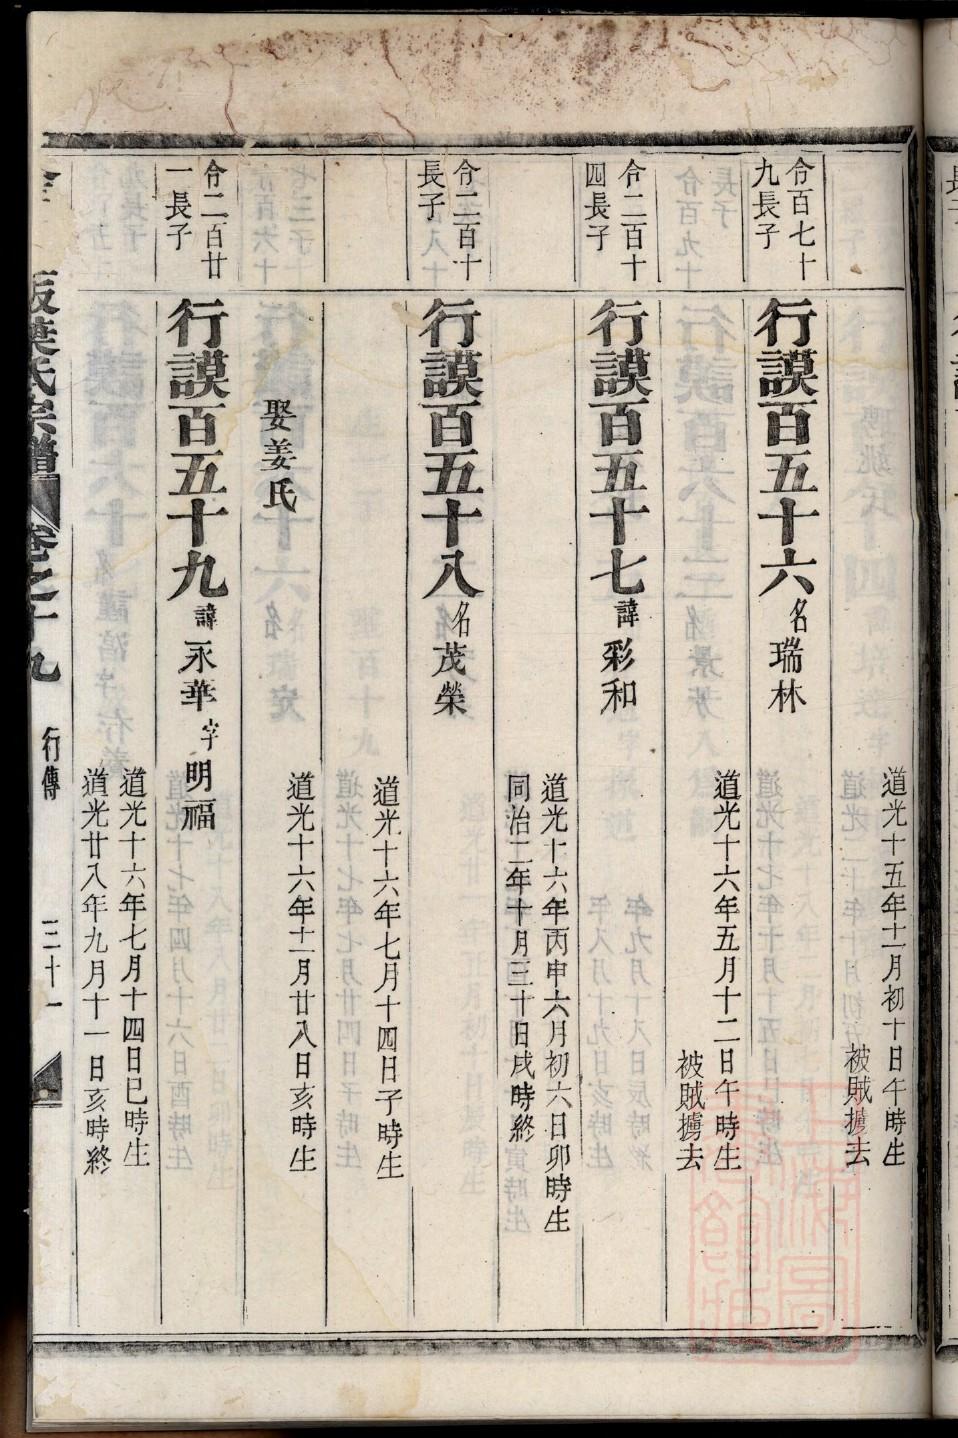 道光十五年十一月初十日午時生
被賊擄去
令百七十
九長子
行謨百五十六名瑞林
道光十六年五月十二日午時生
被賊擄去
令二百十
四長子
行謨百五十七諱彩和
道光十六年丙申六月初六日卯時生
同治二年十月三十日戌時終
令二百十
長子
行謨百五十八名茂榮
道光十六年七月十四日子時生
娶姜氏
道光十六年十一月廿八日亥時生
令二百廿
一長子
行謨百五十九諱永華字明福
道光十六年七月十四日巳時生
道光廿八年九月十一日亥時終
葉氏宗譜
卷之十九
行傳
三十一